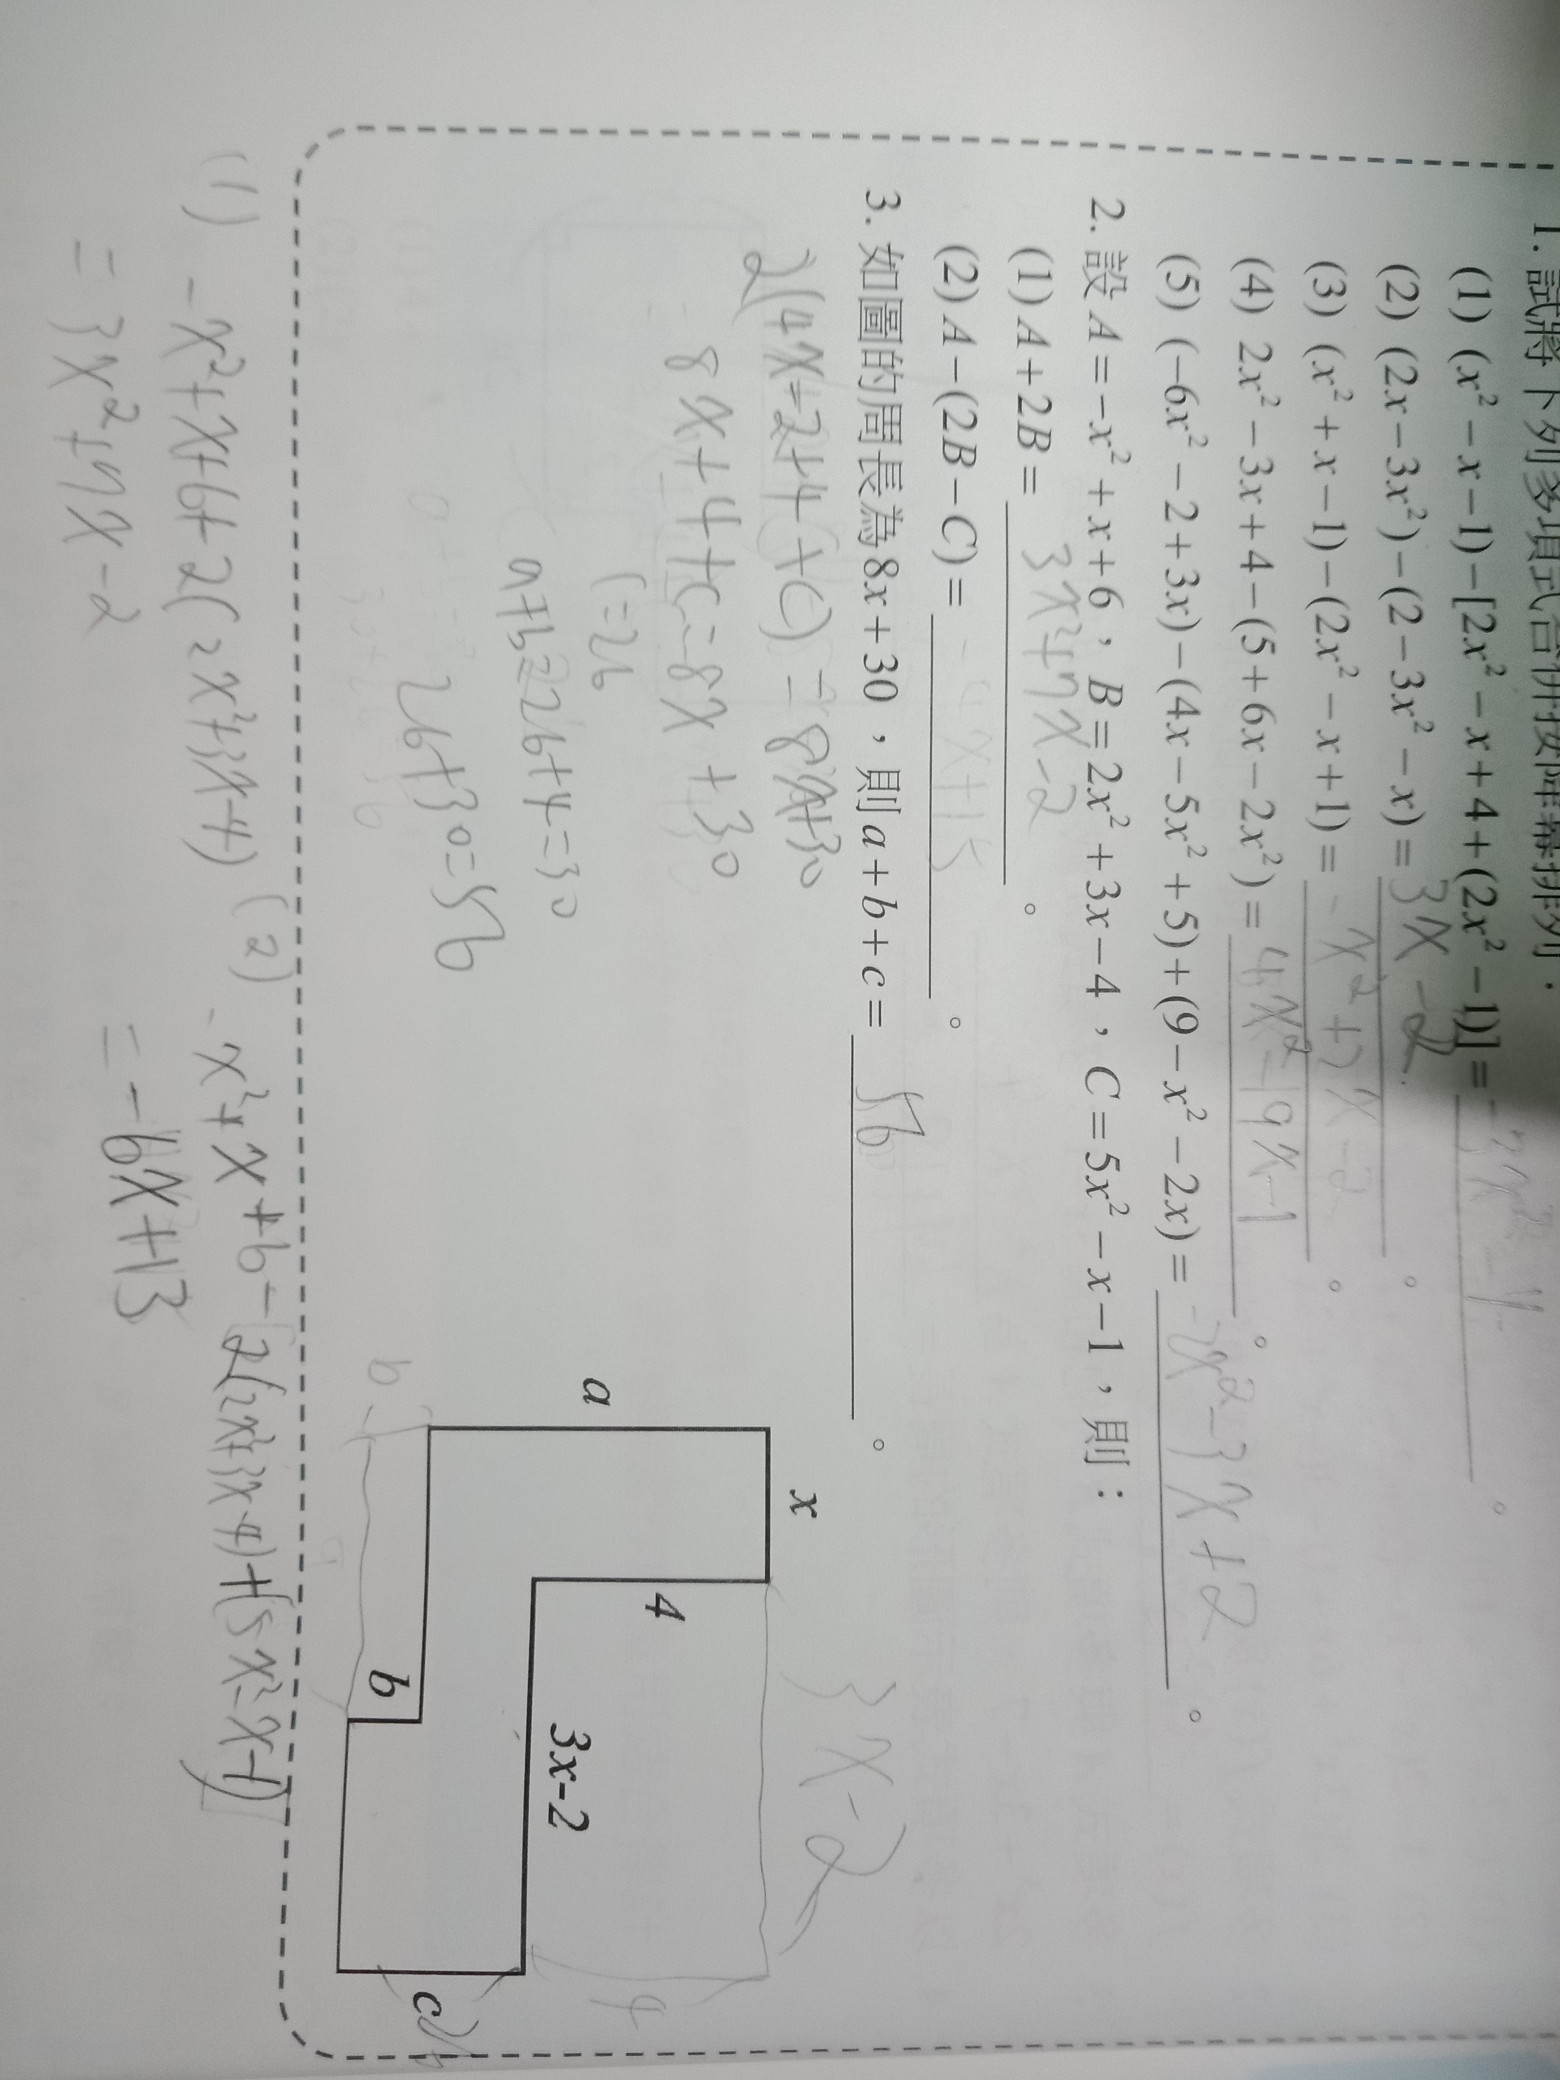 1. 試將下列多項式合併按降冪排列：
(1) (x² − x − 1) − [2x² − x + 4 + (2x² − 1)] = −3x² − 4 。
(2) (2x − 3x²) − (2 − 3x² − x) = 3x − 2 。
(3) (x² + x − 1) − (2x² − x + 1) = −x² + 2x − 2 。
(4) 2x² − 3x + 4 − (5 + 6x − 2x²) = 4x² − 9x − 1 。
(5) (−6x² − 2 + 3x) − (4x − 5x² + 5) + (9 − x² − 2x) = −2x² − 3x + 2 。
2. 設 A = −x² + x + 6，B = 2x² + 3x − 4，C = 5x² − x − 1，則：
(1) A + 2B = 3x² + 7x − 2 。
(2) A − (2B − C) = x + 1 。
3. 如圖的周長為 8x + 30，則 a + b + c = 56 。
2(4x − 2 + 4 + c) = 8x + 30
8x + 4 + c = 8x + 30
c = 26
a + b = 26 + 4 = 30
26 + 30 = 56
x
3x − 2
a
4
4
3x-2
b
b
c
26
(1) −x² + x + 6 + 2(2x² + 3x − 4)
= 3x² + 7x − 2
(2) −x² + x + 6 − 2(2x² + 3x − 4) + (5x² − x − 1)
= −6x + 13